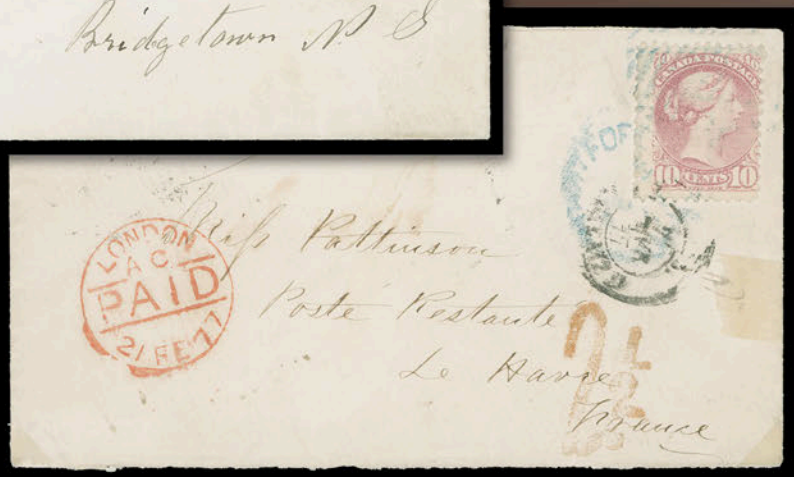 Bridgetown N. S
CANADA POSTAGE
10 CENTS 10
FOR
LONDON
A C
PAID
21 FE 77
Miss Pattinson
Poste Restante
Le Havre
France